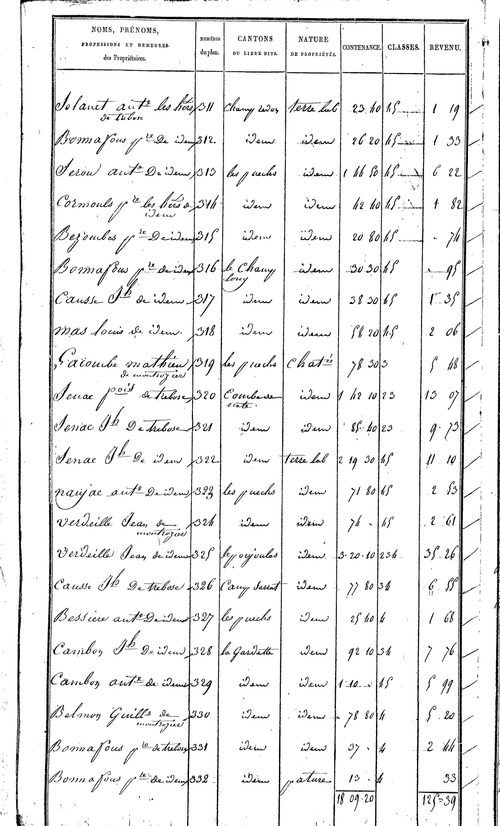 NOMS, PRÉNOMS, PROFESSIONS ET DEMEURES des Propriétaires. NUMÉROS du plan. CANTONS OU LIEUX DITS. NATURE DE PROPRIÉTÉS. CONTENANCE. CLASSES. REVENU.
antne les hérs de trebosc 311 Champ redon terre lab 23 40 45 1 19
Bonnafous pre De idem 312 idem idem 26 20 45 1 33
Serou antne De idem 313 les puechs idem 1 44 50 45 6 22
Cormouls pre les hérs de idem 314 idem idem 42 40 45 1 82
Bezombes pre De idem 315 idem idem 20 80 45 - 74
Bonnafous pre de idem 316 le Champ long idem 30 30 45 - 95
Causse Jh de idem 317 idem idem 38 30 45 1 35
mas louis de idem 318 idem idem 58 20 45 2 06
mathieu de montrozier 319 les puechs Chatre 78 30 3 5 48
Senac de trebosc 320 Combe de idem 1 42 10 23 13 07
Senac Jh De trebosc 321 idem idem 85 40 23 9 73
Senac Jh De idem 322 idem terre lab 2 19 30 45 11 10
naujac antne De idem 323 les puechs idem 71 80 45 2 53
Verdeille Jean de montrozier 324 idem idem 74 - 45 2 61
Verdeille Jean de idem 325 le poujoulas idem 3 20 10 234 35 26
Causse Jh De trebosc 326 Camp idem 77 80 34 6 55
Bessiere antne De idem 327 les puechs idem 25 40 4 1 68
Cambon Jh De idem 328 la Gardette idem 92 10 34 7 76
Cambon antne de idem 329 idem idem 1 10 - 45 5 99
Belmon Guille de montrozier 330 idem idem - 78 80 4 5 20
Bonnafous pre de trebosc 331 idem idem 37 - 4 2 44
Bonnafous pre de idem 332 idem pature 13 - 4 33
18 09 20 125 39